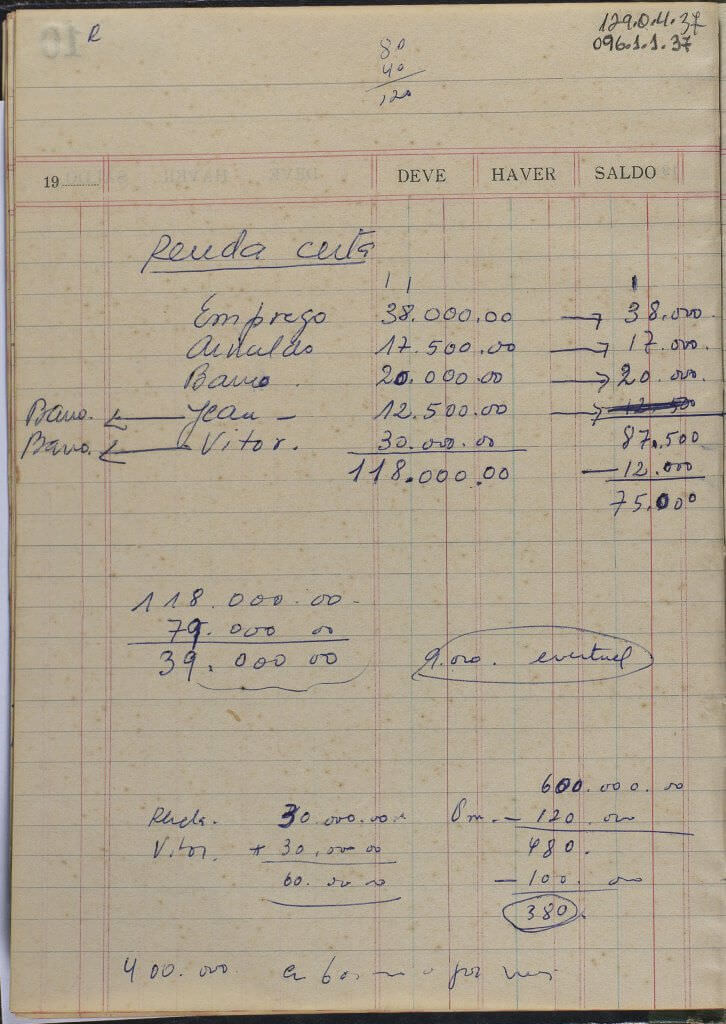 R
129.0.4.37
096.1.1.37
80
40
120
19 DEVE HAVER SALDO
Renda certa
Emprego 38.000.00 → 38.000.
Arnaldo 17.500.00 → 17.000.
20.000.00 → 20.000.
Jean - 12.500.00 → 12.500
Vitor. 30.000.00 87.500
118.000.00 — 12.000
75.000
118.000.00
79.000 00
39.000 00 9.000. eventual
600.000.00
30.000.00 — 120.000
Vitor. + 30.000 00 480.
60.000 — 100.000
380.
400.000 por mês